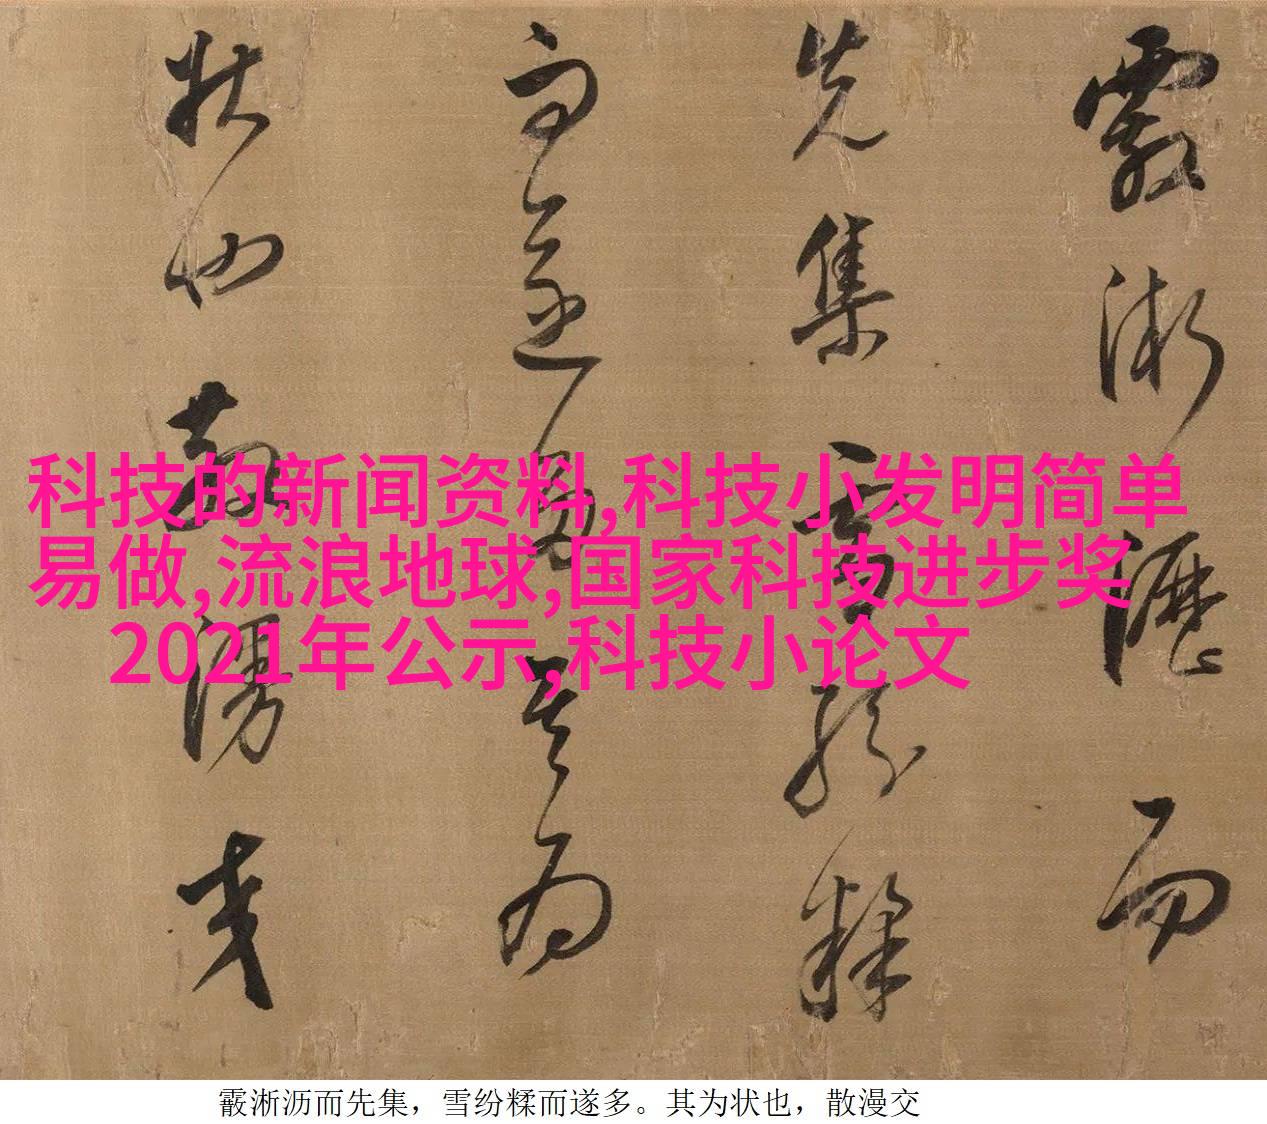 霰淅瀝而
先集雪紛糅
而遂多其為
狀也散漫交
科技的新闻资料,科技小发明简单
易做,流浪地球,国家科技进步奖
2021年公示,科技小论文
霰淅沥而先集，雪纷糅而遂多。其为状也，散漫交